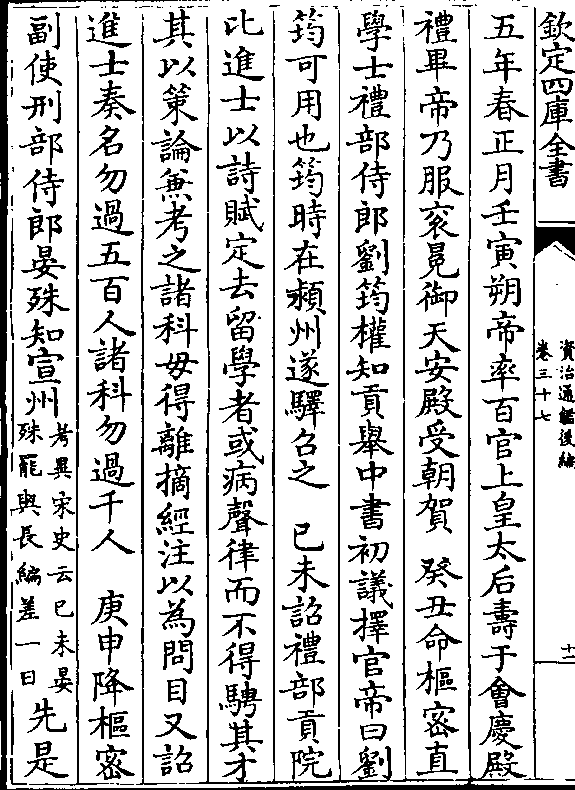 欽定四庫全書
資治通鑑後編
卷三十七
十一
五年春正月壬寅朔帝率百官上皇太后壽于會慶殿
禮畢帝乃服衮冕御天安殿受朝賀　癸丑命樞密直
學士禮部侍郎劉筠權知貢舉中書初議擇官帝曰劉
筠可用也筠時在潁州遂驛召之　已未詔禮部貢院
比進士以詩賦定去留學者或病聲律而不得騁其才
其以策論兼考之諸科毋得離摘經注以為問目又詔
進士奏名勿過五百人諸科勿過千人　庚申降樞密
副使刑部侍郎晏殊知宣州考異宋史云已未晏
殊罷與長編差一日先是